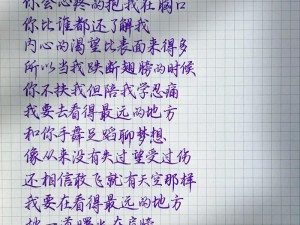 你会心疼的抱我在胸口
你比谁都还了解我
内心的渴望比表面来得多
所以当我跌断翅膀的时候
你不扶我但陪我学忍痛
我要去看得最远的地方
和你手舞足蹈聊梦想
像从来没有失过望受过伤
还相信敢飞就有天空那样
我要在看得最远的地方